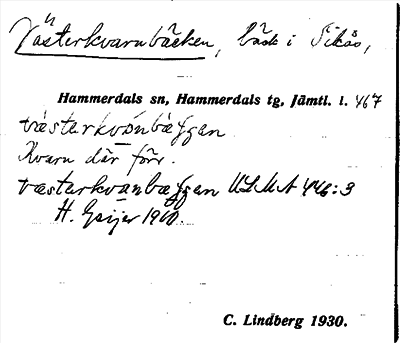 Västerkvarnbäcken, bäck i Sikås,
Hammerdals sn, Hammerdals tg, Jämtl. l. 467
västerkvónbäggen
Kvarn där förr.
västerkvanbæggen ULMA 446:3
H. Geijer 1910.
C. Lindberg 1930.